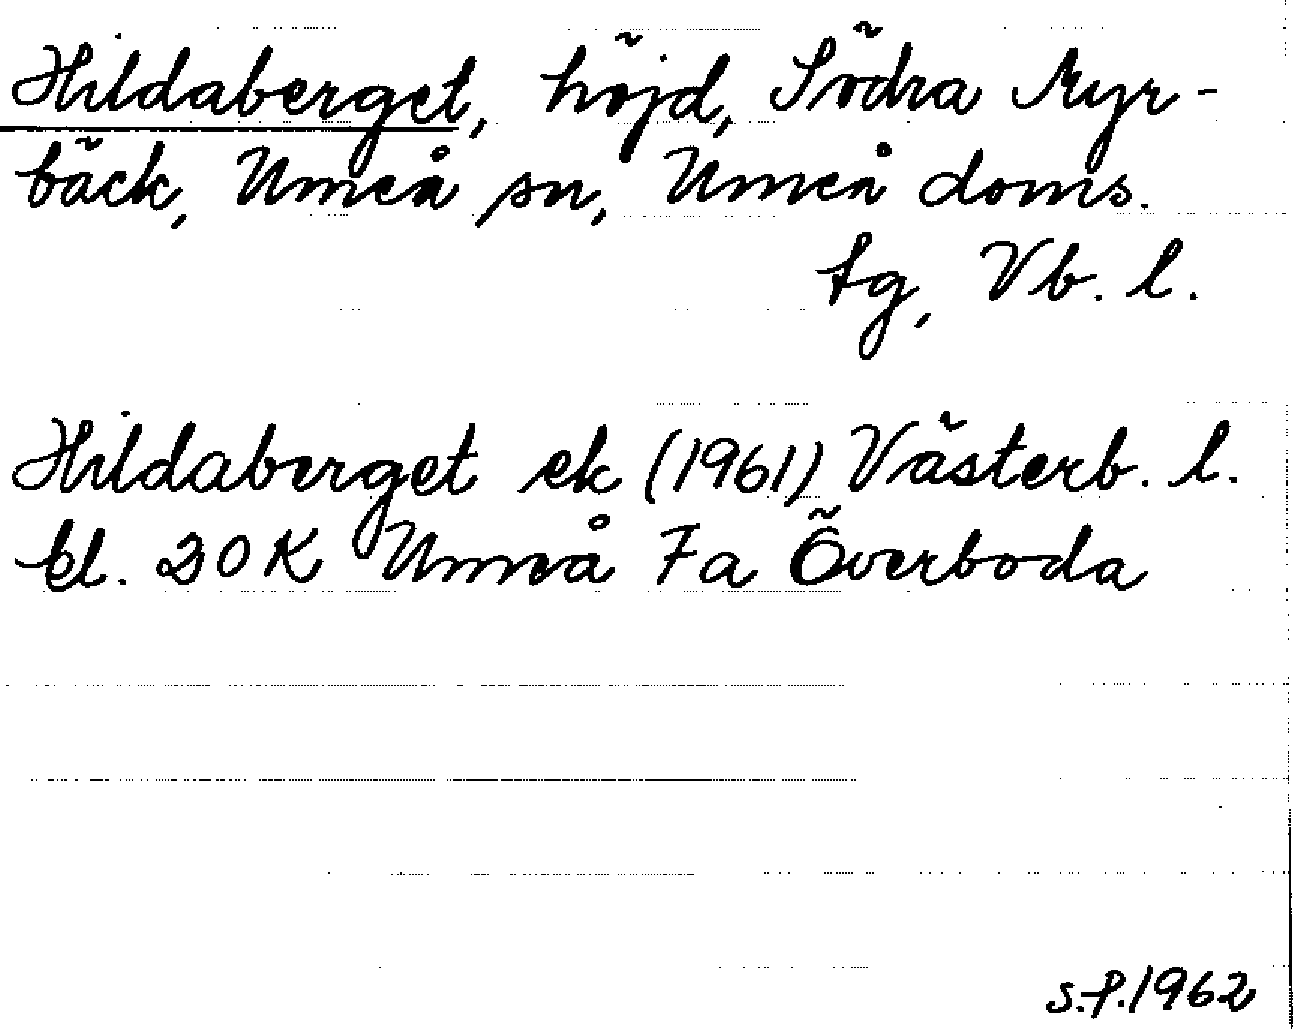 Hildaberget, höjd, Södra Myr-
bäck, Umeå sn, Umeå doms.
tg, Vb. l.
Hildaberget ek (1961) Västerb. l.
bl. 20K Umeå 7a Överboda
s.f. 1962